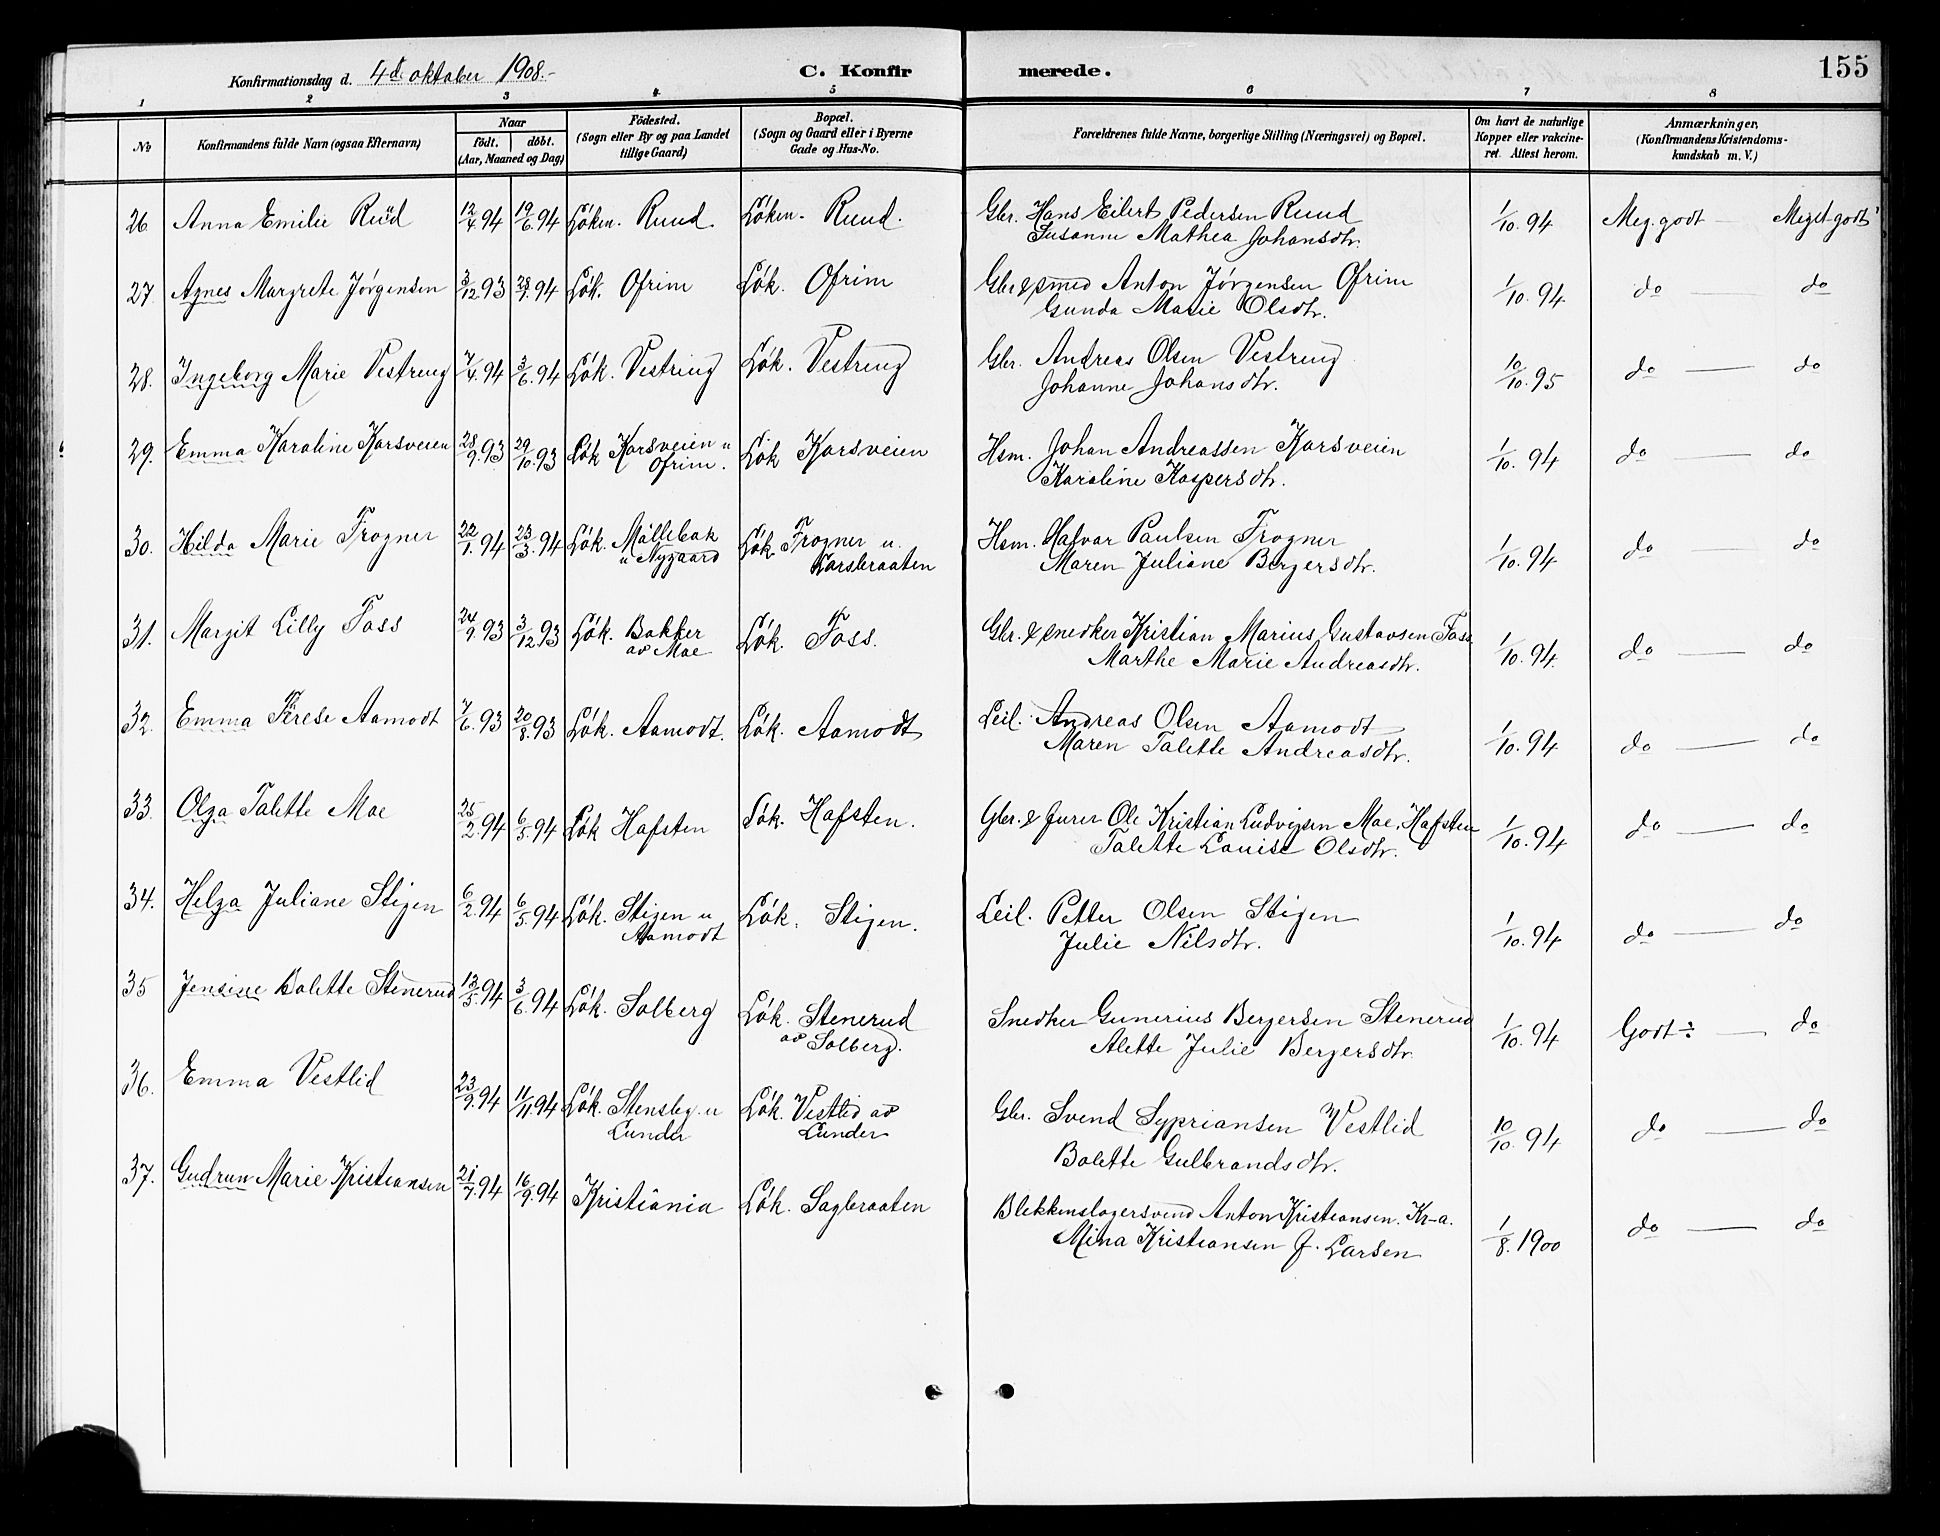 Konfirmationsdag d. 4de oktober 1908.-
C. Konfirmerede.
155
1 2 3 4 5 6 7 8
No
Konfirmandens fulde Navn (ogsaa Efternavn)
Naar
födt. döbt.
(Aar, Maaned og Dag)
Födested.
(Sogn eller By og paa Landet
tillige Gaard)
Bopæl.
(Sogn og Gaard eller i Byerne
Gade og Hus-No.
Forældrenes fulde Navne, borgerlige Stilling (Næringsvei) og Bopæl.
Om havt de naturlige
Kopper eller vakcine-
ret. Attest herom.
Anmærkninger,
(Konfirmandens Kristendoms-
kundskab m. V.)
26 Anna Emilie Ruud 12/4 94 19/6 94 Løken. Ruud Løken. Ruud. Gbr. Hans Eilert Pedersen Ruud 1/10. 94 Meg. godt — Meget godt
Susanne Mathea Johansdtr.
27. Agnes Margrete Jørgensen 3/12 93 28/1. 94 Løk. Ofrim Løk. Ofrim Gbr & smed Anton Jørgensen Ofrim 1/10. 94 do — do
Gunda Marie Olsdtr.
28. Ingeborg Marie Vestreng 7/4. 94 3/6. 94 Løk. Vestreng Løk. Vestreng Gbr. Andreas Olsen Vestreng 10/10. 95 do — do
Johanne Johansdtr.
29. Emma Karoline Korsveien 28/9. 93 29/10. 93 Løk Korsveien u Løk Korsveien Hsm. Johan Andreassen Korsveien 1/10. 94 do — do
Ofrim. Karoline Kaspersdtr.
30. Hilda Marie Frogner 22/1. 94 23/3. 94 Løk. Møllebak Løk. Frogner u. Hsm. Halvar Paulsen Frogner 1/10. 94 do — do
u Nygaard Korsbraaten Maren Juliane Bergersdtr.
31. Margit Lilly Foss 24/9. 93 3/12 93 Løk. Bakker Løk. Foss. Gbr. & snedker Kristian Marius Gustavsen Foss 1/10. 94. do — do
av Moe Marthe Marie Andreasdtr.
32. Emma Terese Aamodt 7/6. 93 20/8. 93 Løk. Aamodt. Løk. Aamodt Leil. Andreas Olsen Aamodt 1/10. 94 do — do
Maren Talette Andreasdtr.
33. Olga Talette Moe 25/2. 94 6/5. 94 Løk Hafsten Løk. Hafsten. Gbr. & furer Ole Kristian Ludvigsen Moe, Hafsten 1/10. 94 do — do
Talette Louise Olsdtr.
34. Helga Juliane Stigen 6/2. 94 6/5. 94 Løk. Stigen u Løk. Stigen. Leil. Petter Olsen Stigen 1/10. 94 do — do
Aamodt Julie Nilsdtr.
35 Jensine Bolette Stenerud 13/5. 94 3/6. 94 Løk. Solberg Løk. Stenerud Snedker Gunerius Bergersen Stenerud 1/10. 94 Godt ÷ — do
av Solberg. Alette Julie Bergersdtr.
36. Emma Vestlid 23/9. 94 11/11. 94 Løk. Stensby u Løk. Vestlid av Gbr. Svend Sypriansen Vestlid 10/10. 94 do — do
Lunder Lunder Bolette Gulbrandsdtr.
37. Gudrun Marie Kristiansen 21/7. 94 16/9. 94 Kristiania Løk. Sagbraaten Blikkenslagersvend Anton Kristiansen. Kr-a. 1/8. 1900 do — do
Mina Kristiansen f. Larsen